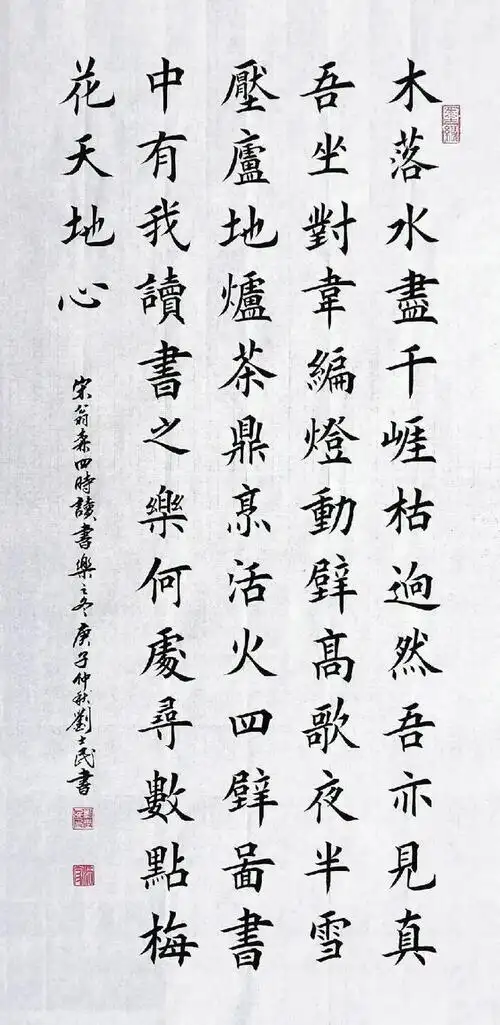 木落水盡千崕枯逈然吾亦見真
吾坐對韋編燈動壁髙歌夜半雪
壓廬地爐茶鼎烹活火四壁啚書
中有我讀書之樂何處尋數點梅
花天地心
宋翁森四時讀書樂之冬庚子仲秋劉士民書